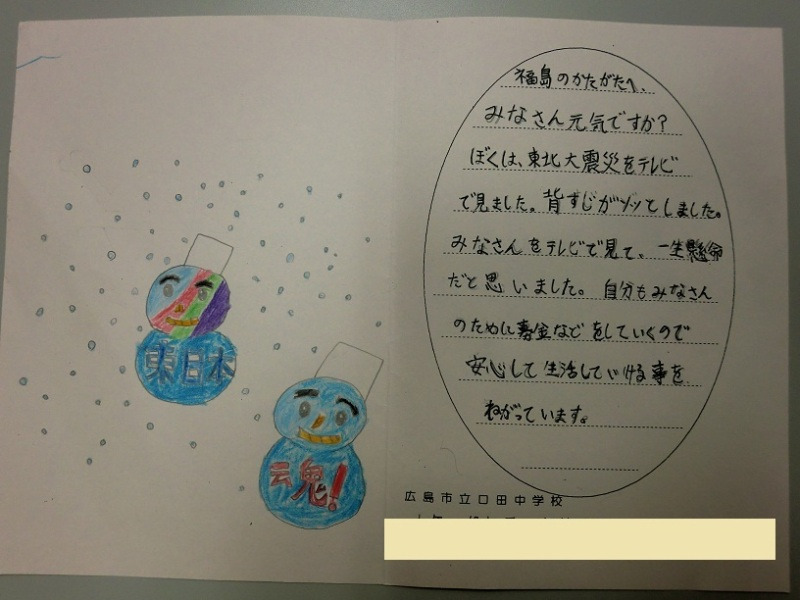 東日本
魂!
福島のかたがたへ、
みなさん元気ですか?
ぼくは、東北大震災をテレビ
で見ました。背すじがゾッとしました。
みなさんをテレビで見て、一生懸命
だと思いました。自分もみなさん
のために募金などをしていくので
安心して生活していける事を
ねがっています。
広島市立口田中学校